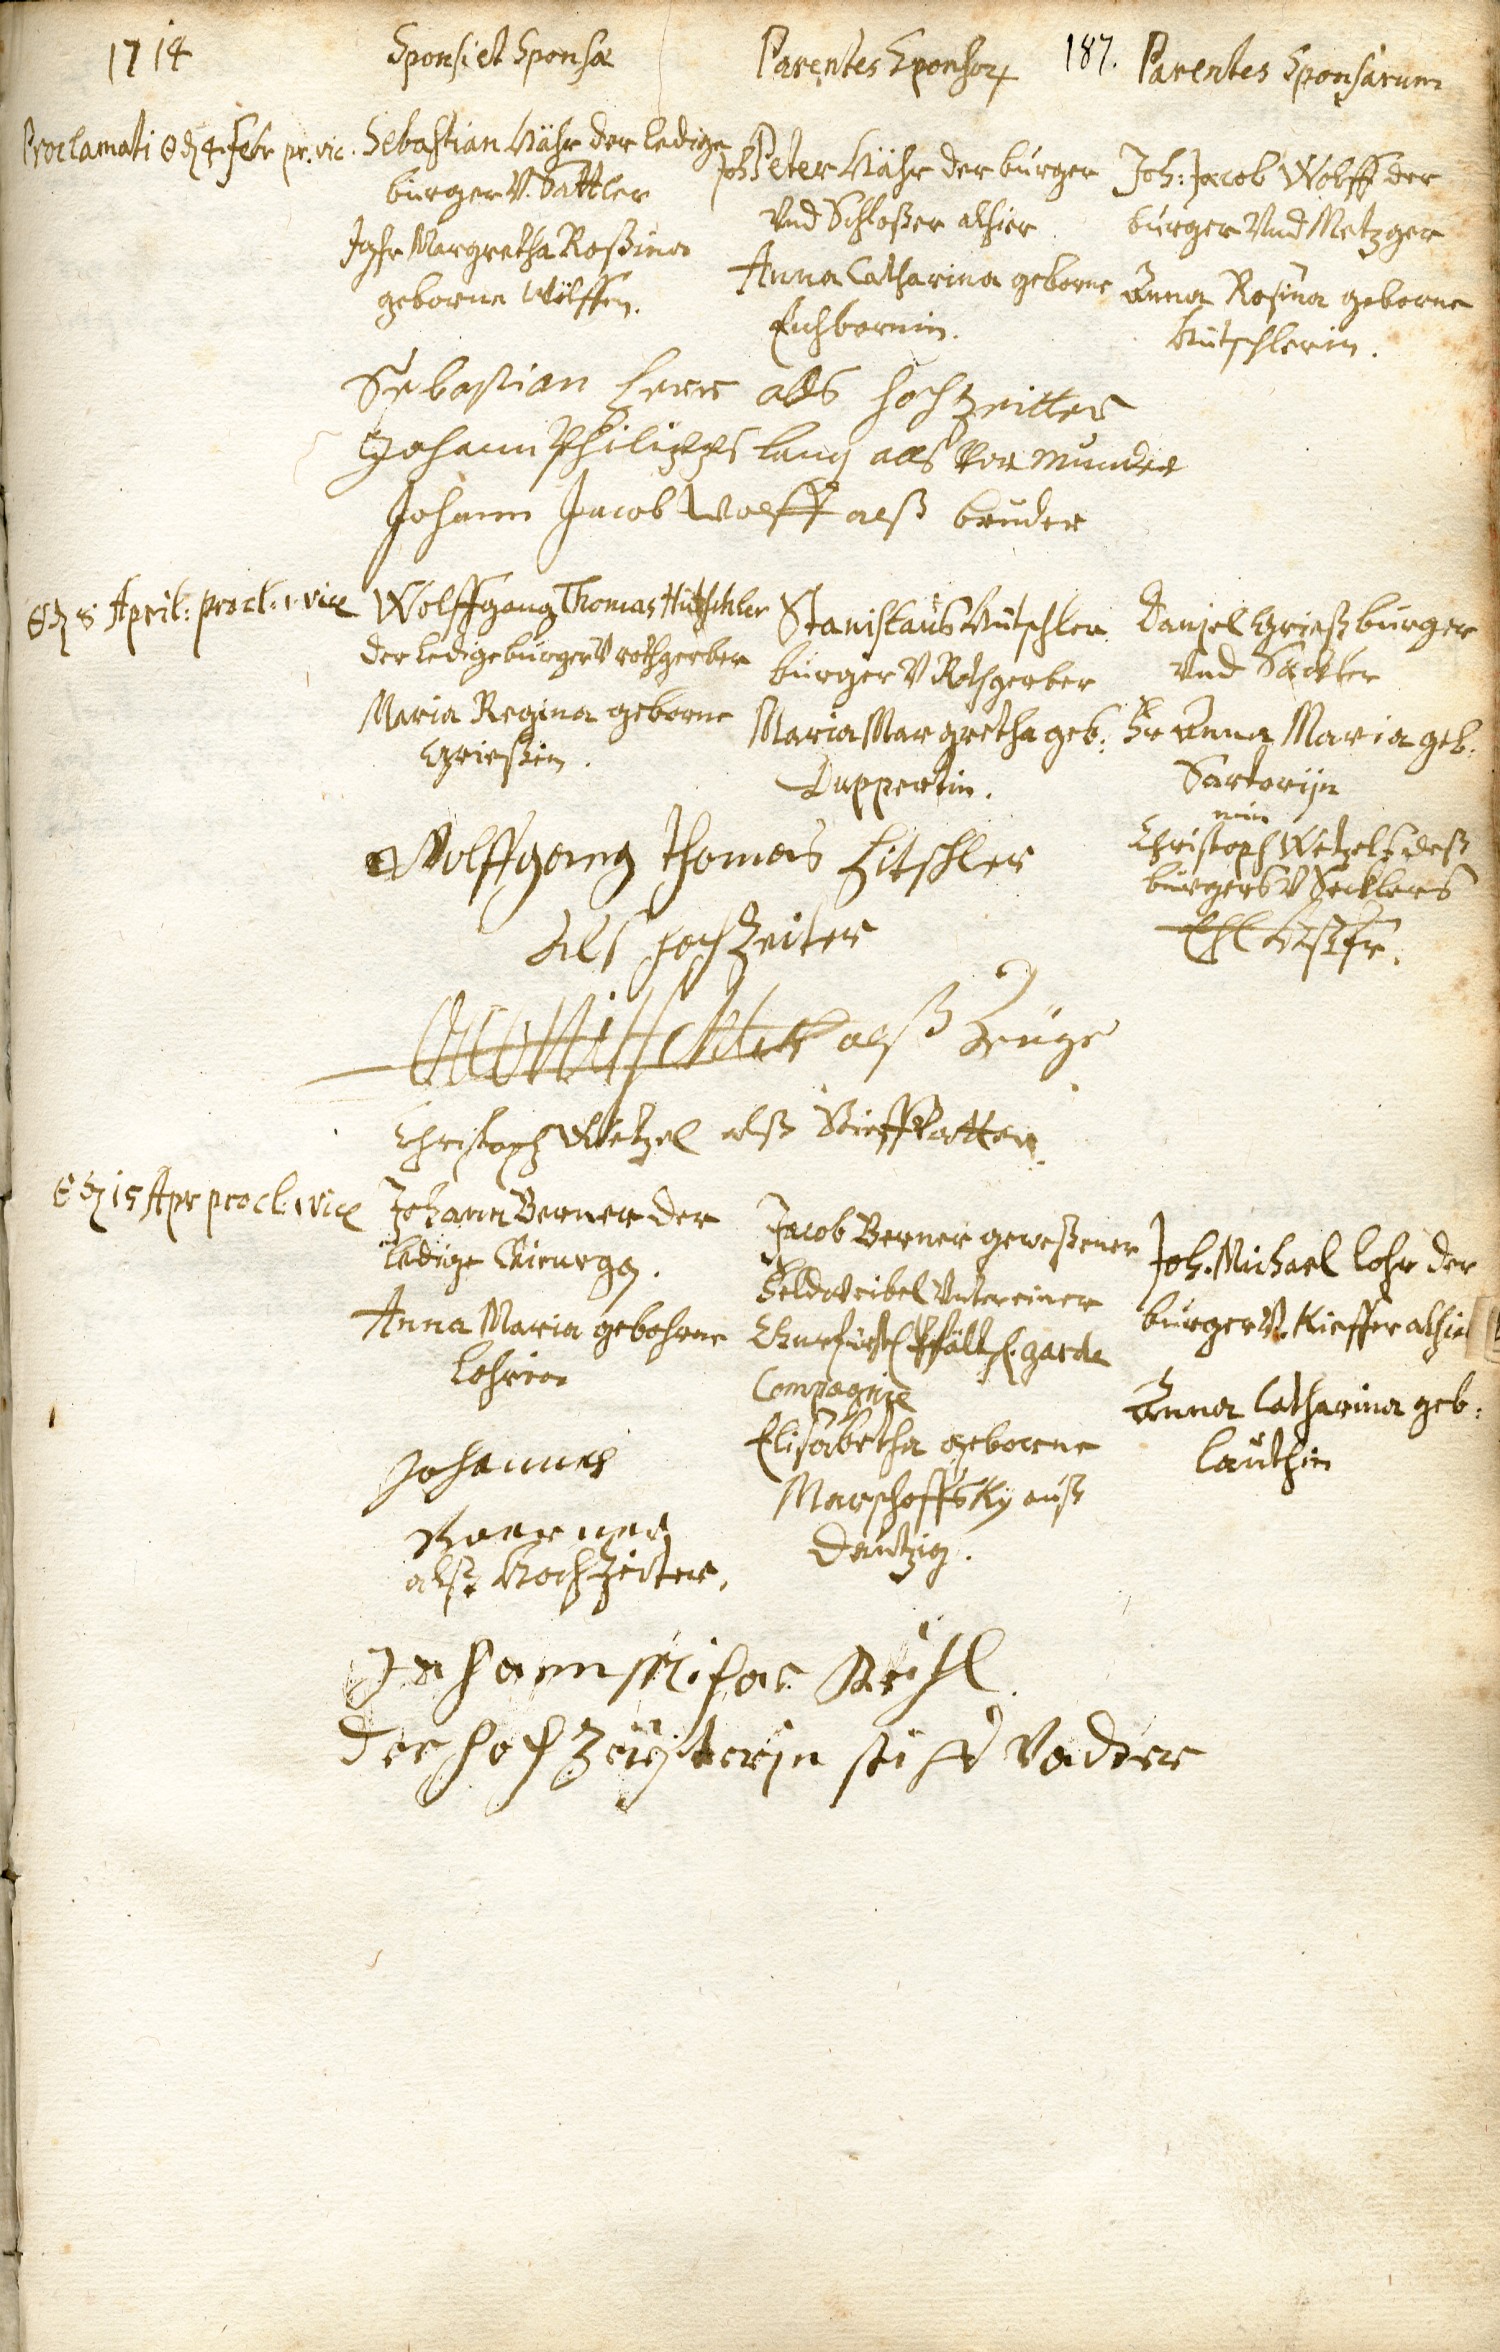 1714
Sponsi et Sponsæ
Parentes Sponsor
187.
Parentes Sponsarum
Proclamati 4. Febr pr. vic.
Sebastian Hähr der ledige
burger V. Sattler
Jgfr Margretha Roßina
geborne Wölffin.
Joh Peter Hähr der burger
Vnd Schloßer alhier
Anna Catharina geborne
Eichbornin.
Joh: Jacob Wolff der
burger Vnd Metzger
Anna Rosina geborne
Hütschlerin.
Sebastian Herr als hochzeitter
Johann Philipps lang als Vormunder
Johann Jacob Wolff alß bruder
8 April: procl. 1 vice
Wolffgang Thomas Hütschler
der ledige burger V rothgerber
Maria Regina geborne
Grießin.
Stanislaus Hütschler
burger V Rothgerber
Maria Margretha geb:
Duppertin.
Daniel Grieß burger
Vnd Säckler
Fr Anna Maria geb:
Sartorijn
nun
Christoph Wetzels deß
burgers V Secklers
Ehl Haußfr.
Wolffgang Thomas Hitschler
Als hochzeiter
alß Zeuge
Christoph Wetzel alß Stieffvatter
15 Apr procl. 1 vice
Johann Berner der
ledige Chirurgg.
Anna Maria gebohrne
Lohrin
Jacob Berner geweßener
Feldweibel Vnter einer
Churfürstl Pfältz. garde
Compagnie
Elisabetha geborne
Marschoffsky auß
Dantzig.
Joh. Michael Lohr der
burger V. Kieffer alhier
Anna Catharina geb:
Lauthin
Johannes
Berner
alß Hochzeiter.
Johann
der hoch Zeijterin stiff Vadder